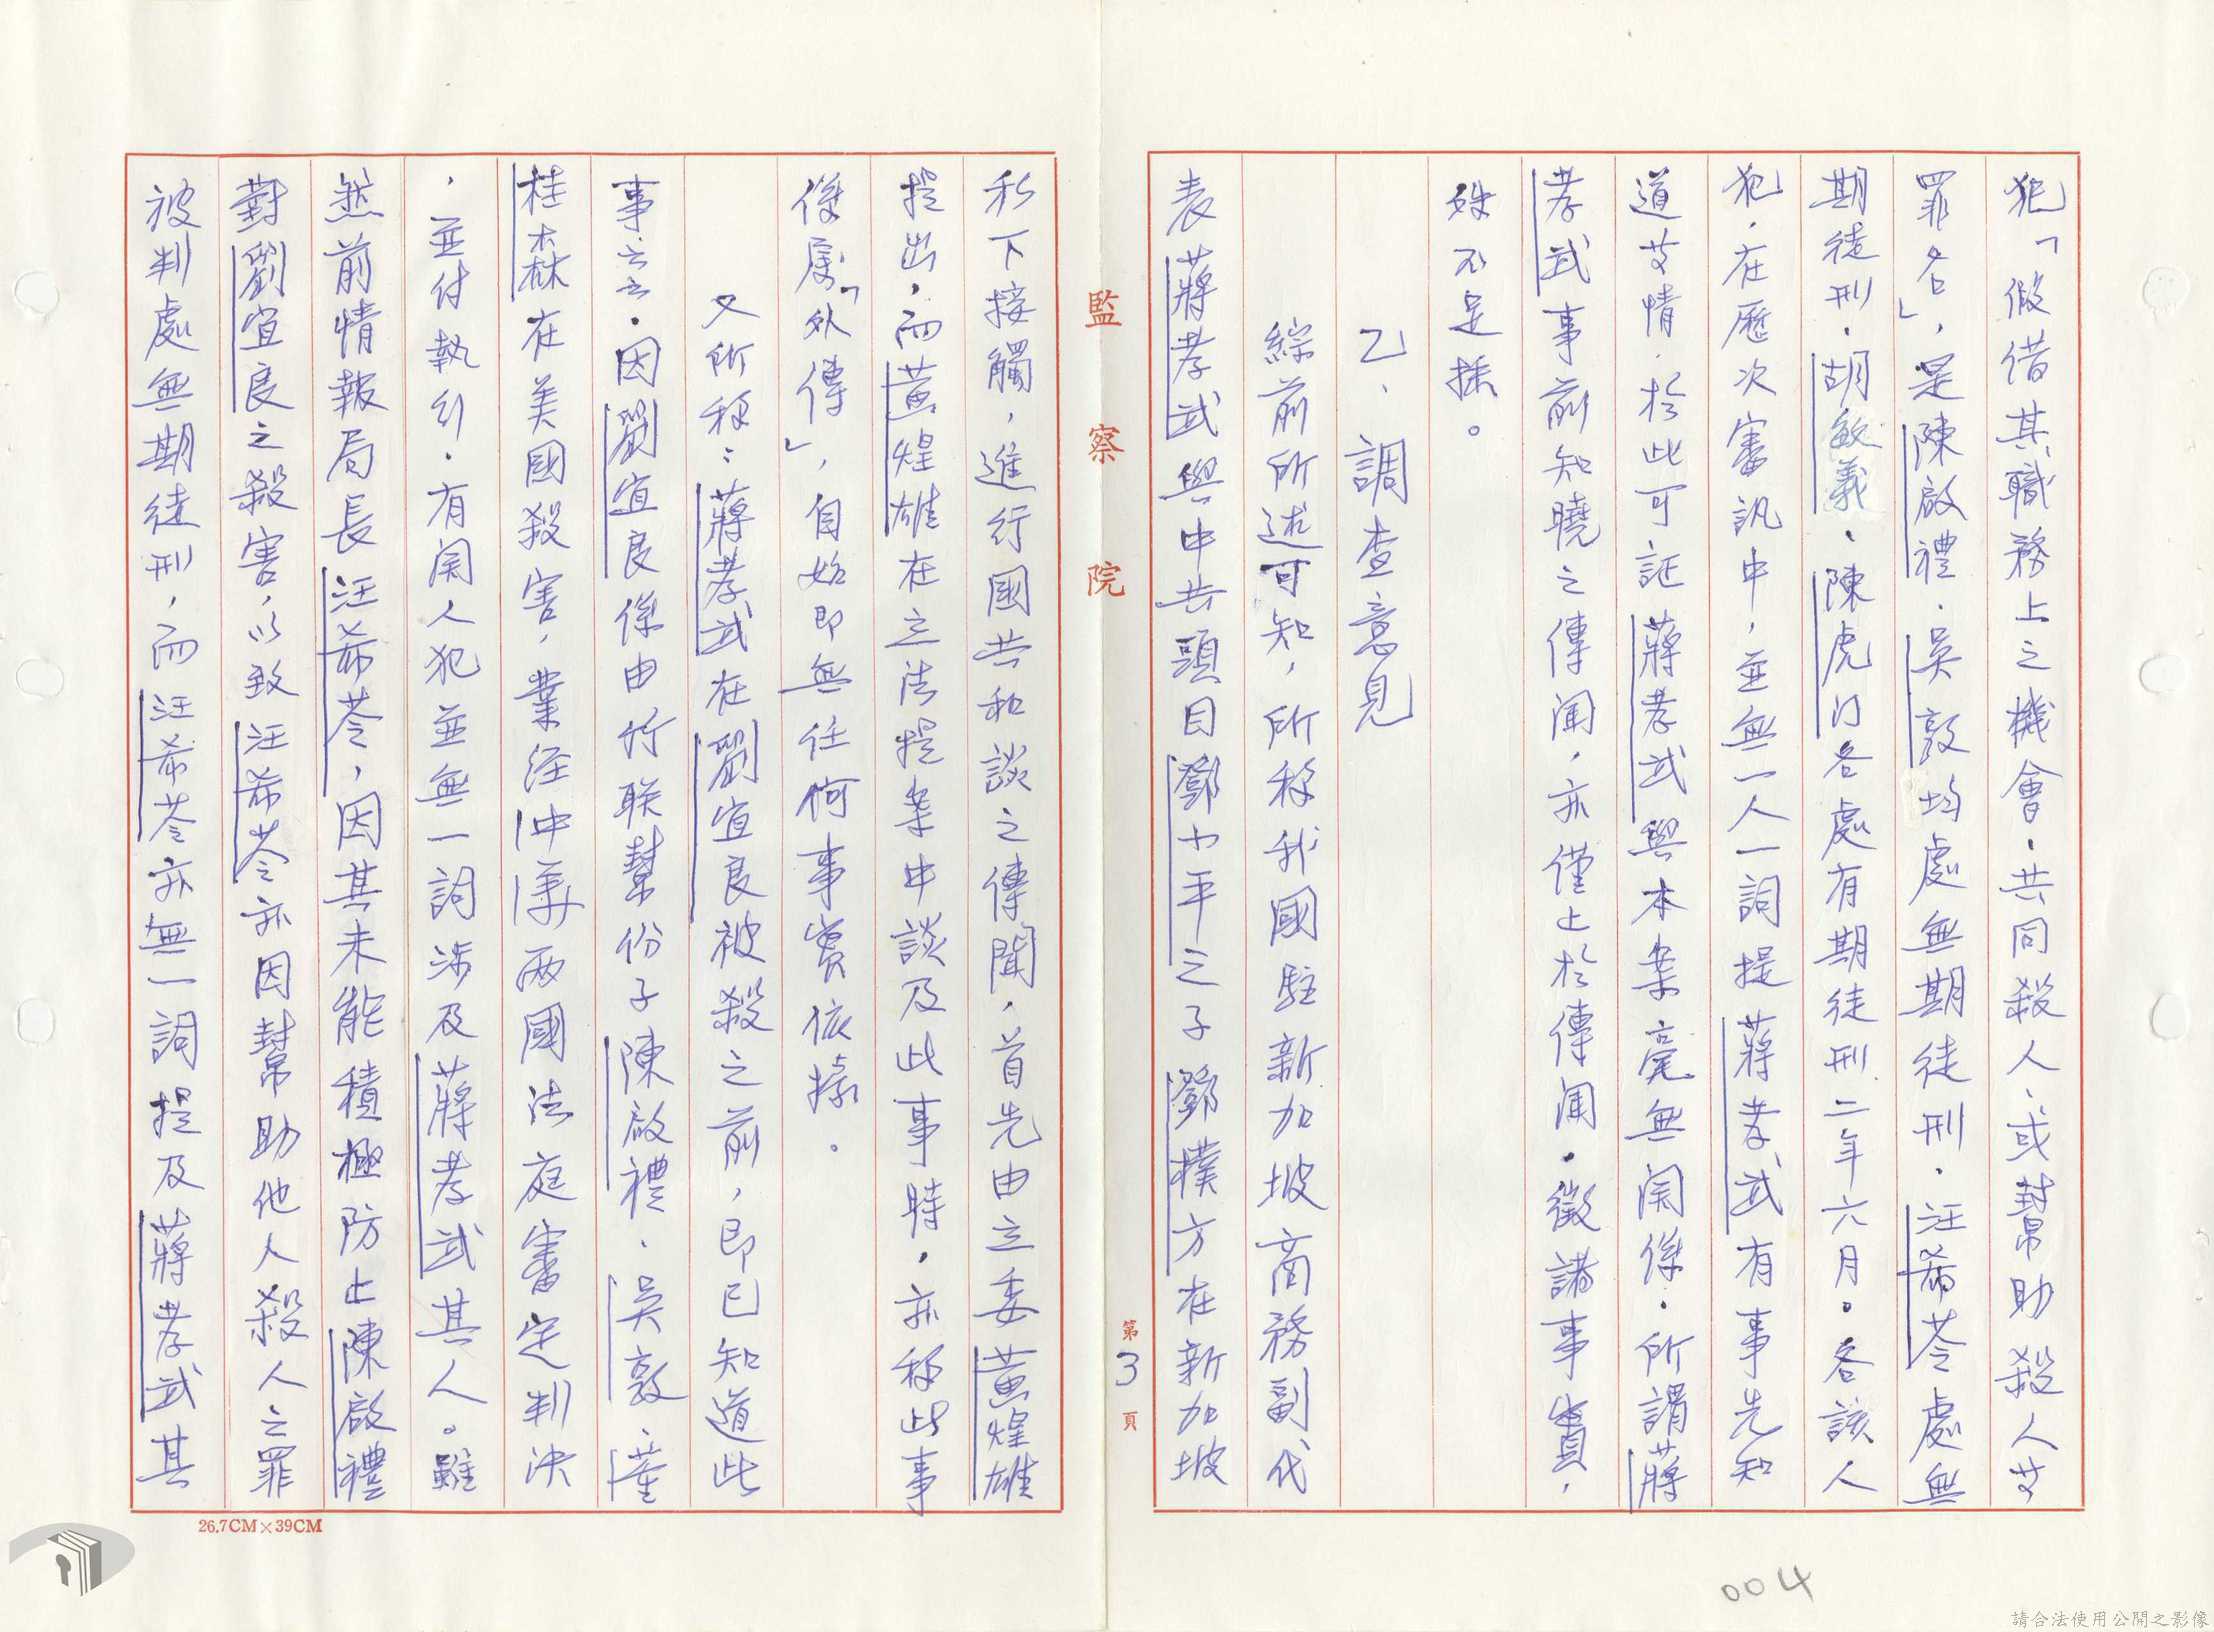 犯「假借其職務上之機會,共同殺人,或幫助殺人艾
罪名」,是陳啟禮、吳敦均處無期徒刑,汪希苓處無
期徒刑,胡敏義、陳虎门各處有期徒刑二年六月。各該人
犯,在歷次審訊中,並無一人一詞提蔣孝武有事先知
道艾情,於此可証蔣孝武與本案毫無関係。所謂蔣
孝武事前知曉之傳闻,亦僅止於傳闻,徵諸事實,
殊不足採。
乙、調查意見
綜前所述可知,所称我國駐新加坡商務副代
表蔣孝武與中共頭目鄧小平之子鄧樸方在新加坡
監察院
第3頁
私下接觸,進行國共和談之傳聞,首先由立委黃煌雄
提出,而黃煌雄在立法提案中談及此事時,亦称此事
係屬「外傳」,自始即無任何事實依據。
又所称:蔣孝武在劉宜良被殺之前,即已知道此
事云云,因劉宜良係由竹联幫份子陳啟禮、吳敦、董
桂森在美國殺害,業经中美兩國法庭審定判決
,並付執行,有関人犯並無一詞涉及蔣孝武其人。雖
然前情報局長汪希苓,因其未能積極防止陳啟禮
對劉宜良之殺害,以致汪希苓亦因幫助他人殺人之罪
被判處無期徒刑,而汪希苓亦無一詞提及蔣孝武其
26.7CM×39CM
004
請合法使用公開之影像